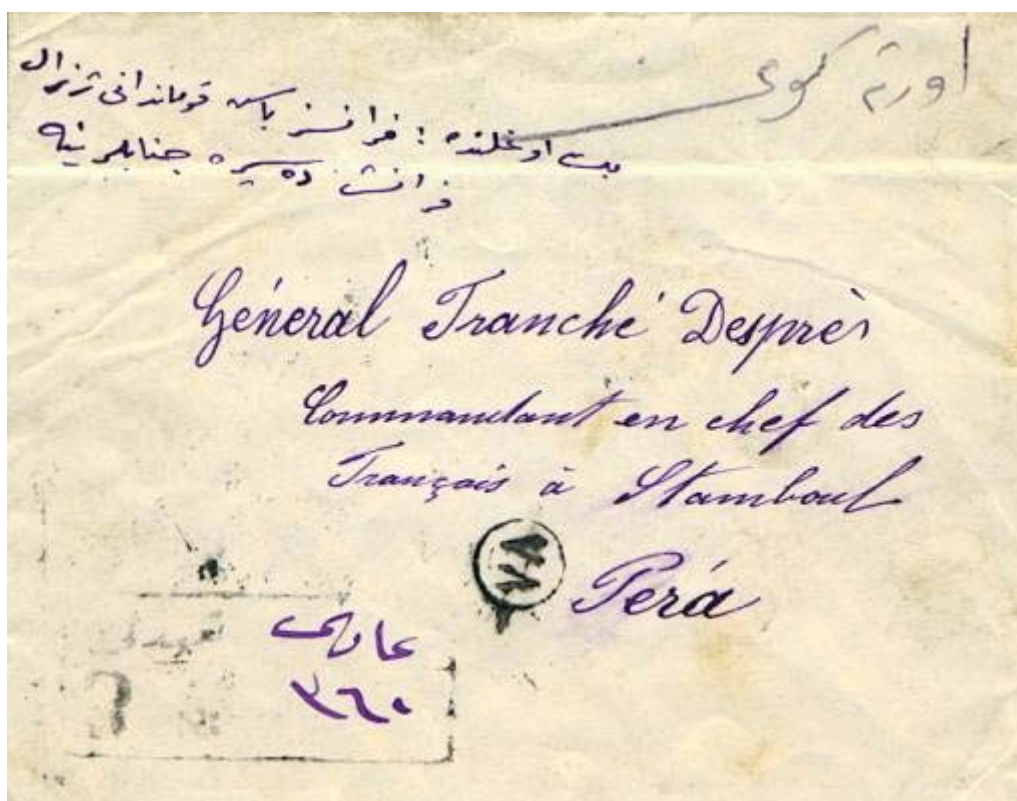 اورته كوی
بك اوغلنده : فرانسز باش قوماندانی ژنرال
فرانشه ده سپره جنابلرینه
Géneral Franché Desprès
Commandant en chef des
Français à Stamboul
٧٨
Perá
٣٦٠